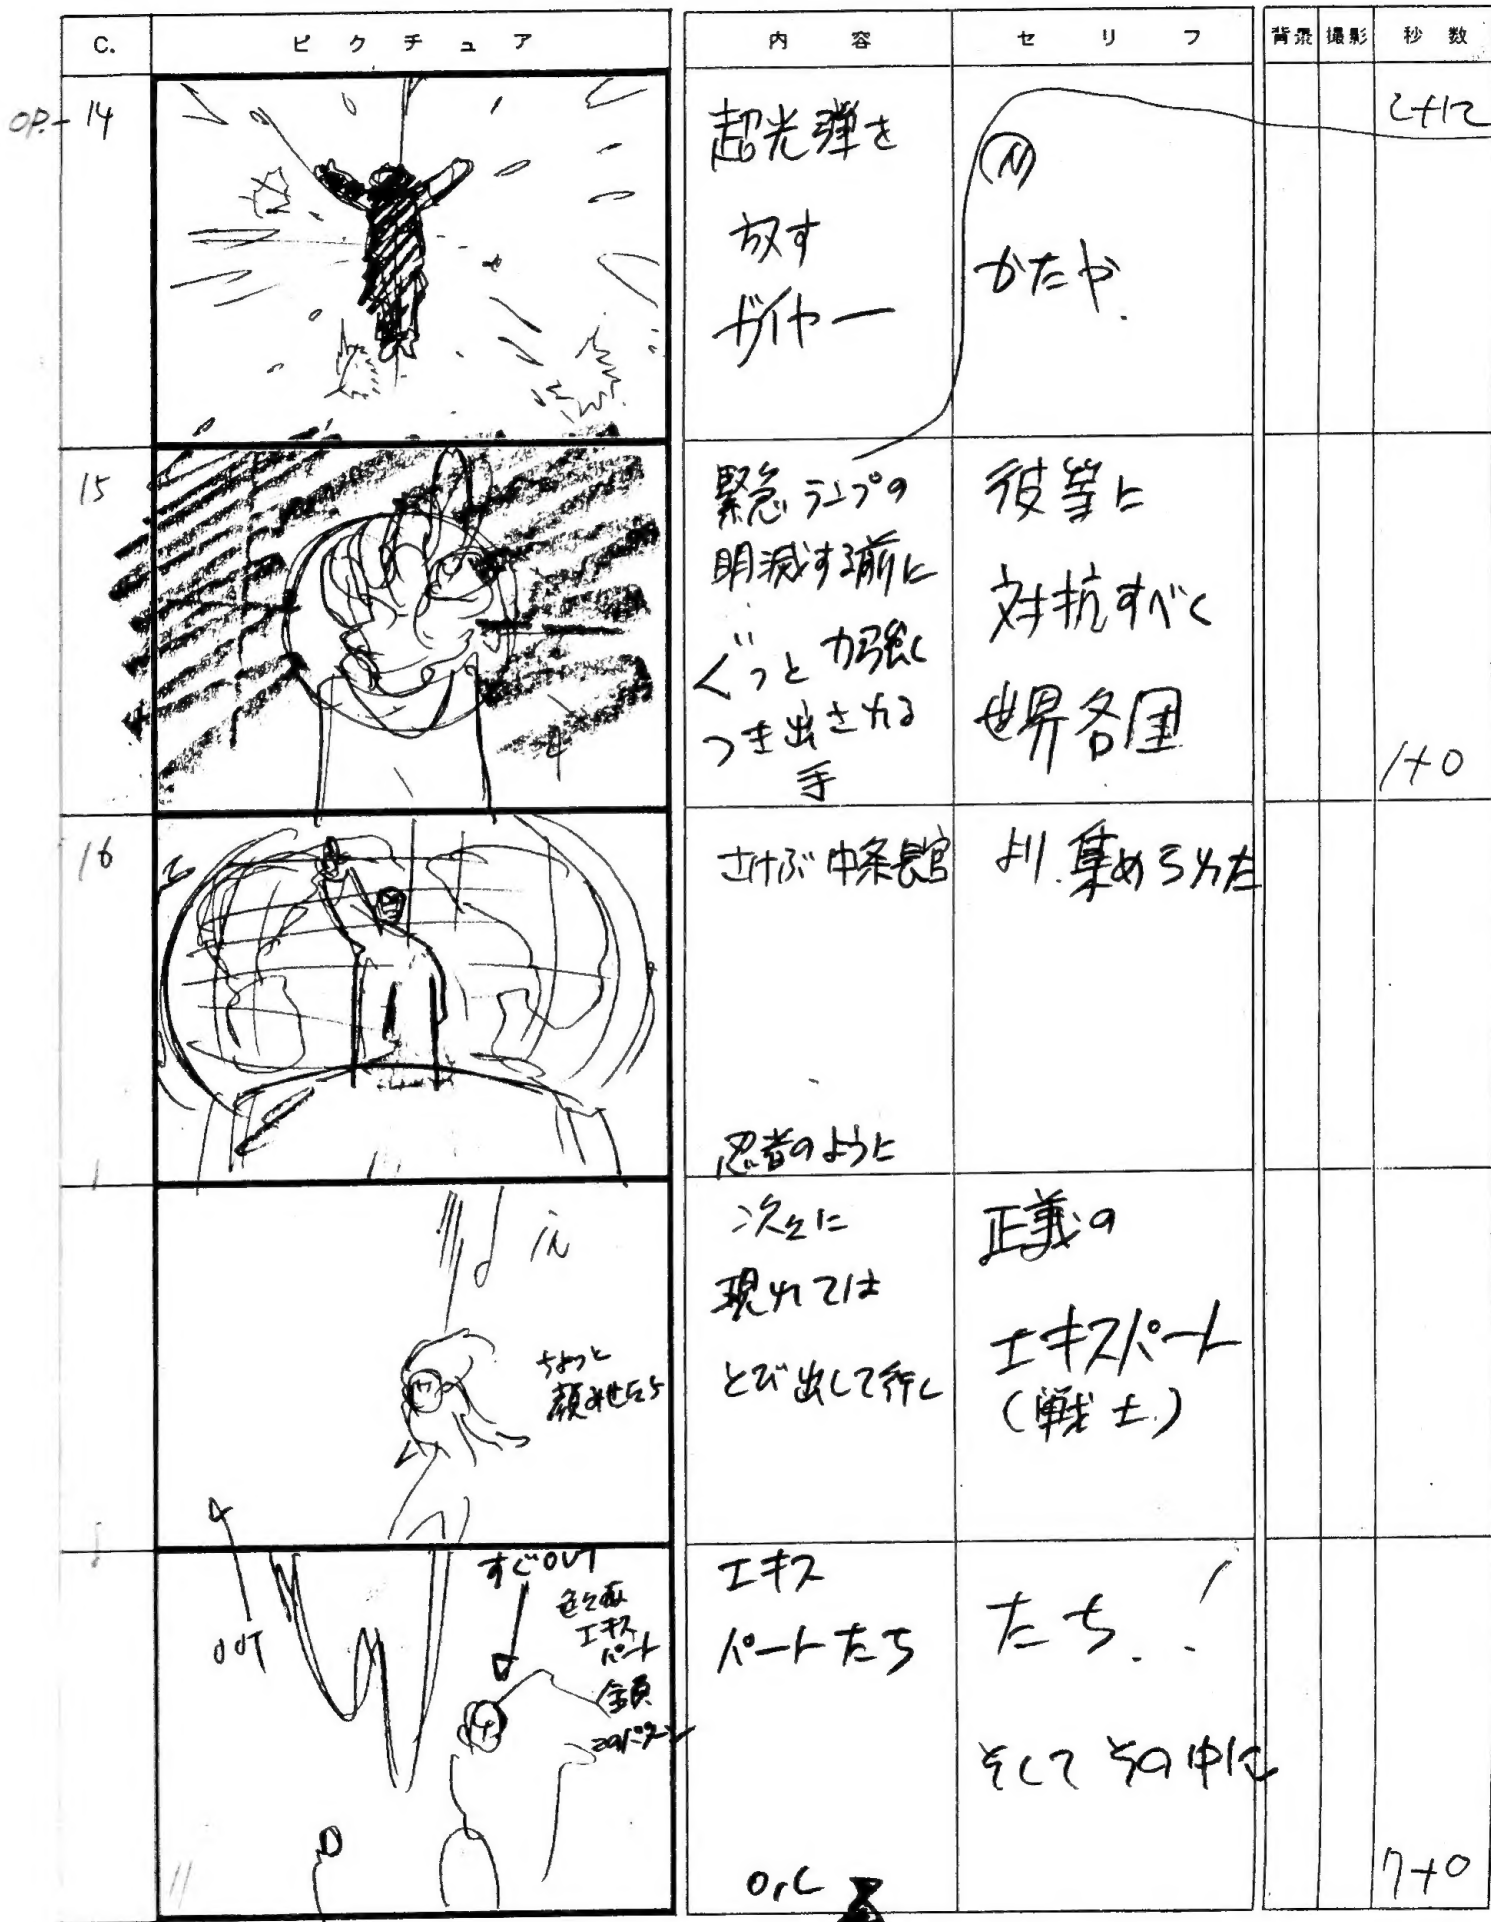 C.
ピクチュア
内容
セリフ
背景
撮影
秒数
OP.-14
超光弾を
放す
ガイヤー
N
かたや.
2+12
15
緊急ランプの
明滅する前に
ぐっと力強く
つき出される
手
彼等に
対抗すべく
世界各国
1+0
16
さけぶ中条長官
より.集められた
忍者のように
ちょっと
顔みせたら
次々に
現れては
とび出して行く
正義の
エキスパート
(戦士)
OUT
すぐOUT
色々な
エキス
パート
全員
このパターン
エキス
パートたち
たち..!
そしてその中に
O.L
7+0